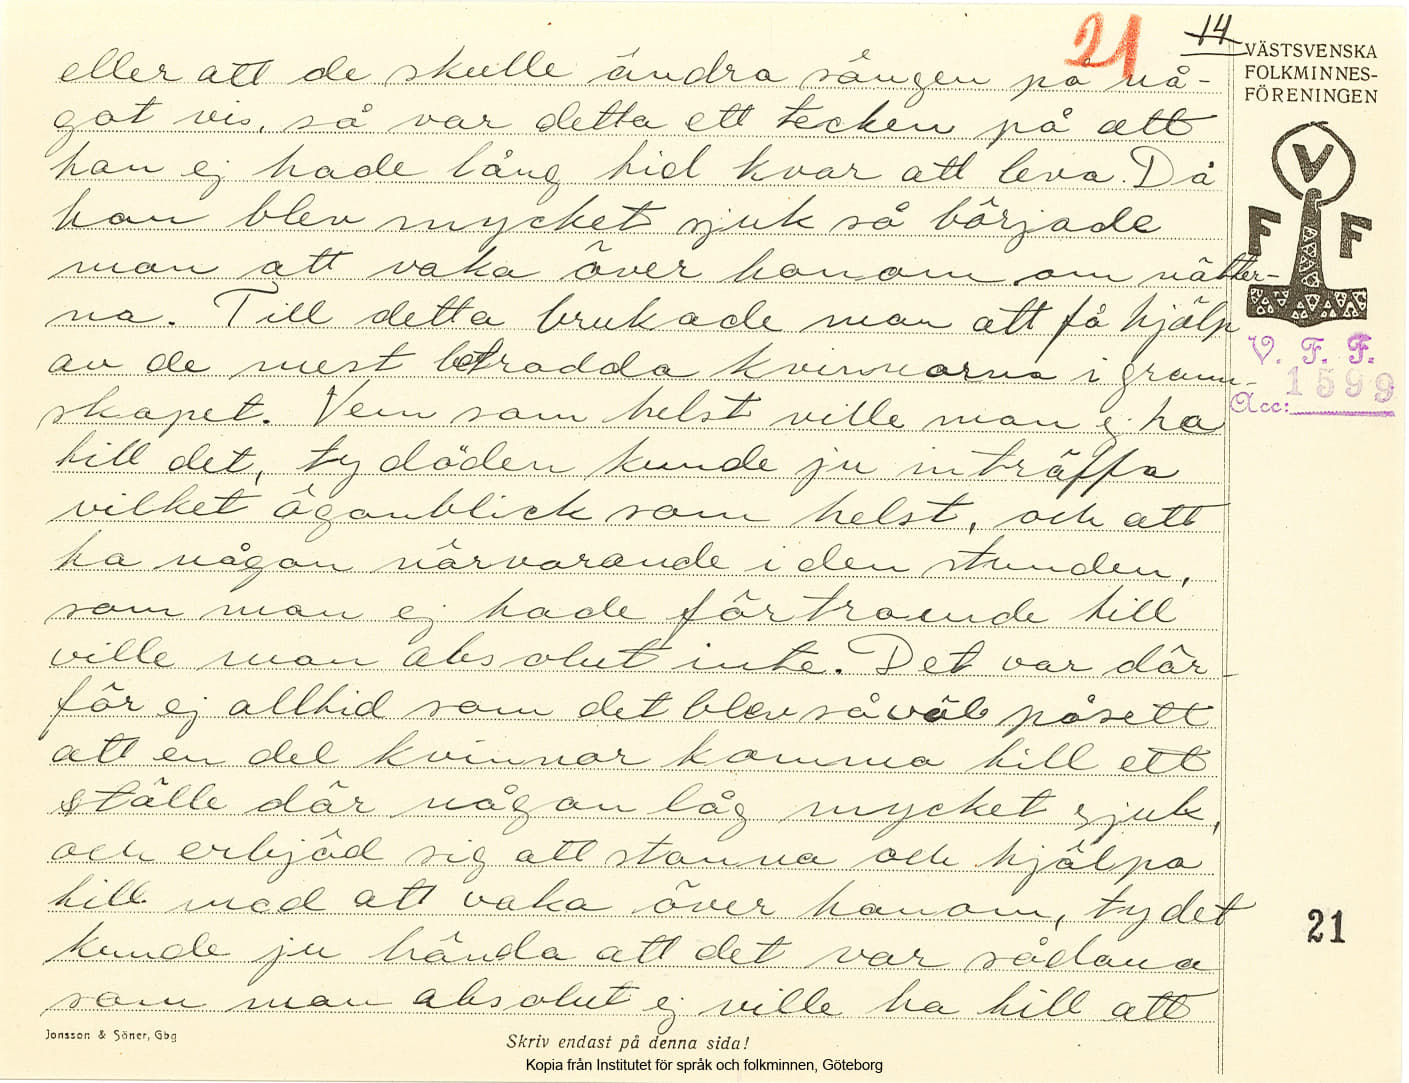 21
14
VÄSTSVENSKA
FOLKMINNES-
FÖRENINGEN
eller att de skulle ändra sången på nå-
got vis, så var detta ett tecken på att
han ej hade lång tid kvar att leva. Då
han blev mycket sjuk så började
man att vaka över honom om nätter-
na. Till detta brukade man att få hjälp
av de mest betrodda kvinnorna i grann-
skapet. Vem som helst ville man ej ha
till det, ty döden kunde ju inträffa
vilket ögonblick som helst, och att
ha någon närvarande i den stunden,
som man ej hade förtroende till
ville man absolut inte. Det var där-
för ej alltid som det blev så väl påsett
att en del kvinnor komma till ett
ställe där någon låg mycket sjuk,
och erbjöd sig att stanna och hjälpa
till med att vaka över honom, ty det
kunde ju hända att det var sådana
som man absolut ej ville ha till att
V
F F
V. F. F.
Acc: 1599
21
Jonsson & Söner, Gbg
Skriv endast på denna sida!
Kopia från Institutet för språk och folkminnen, Göteborg